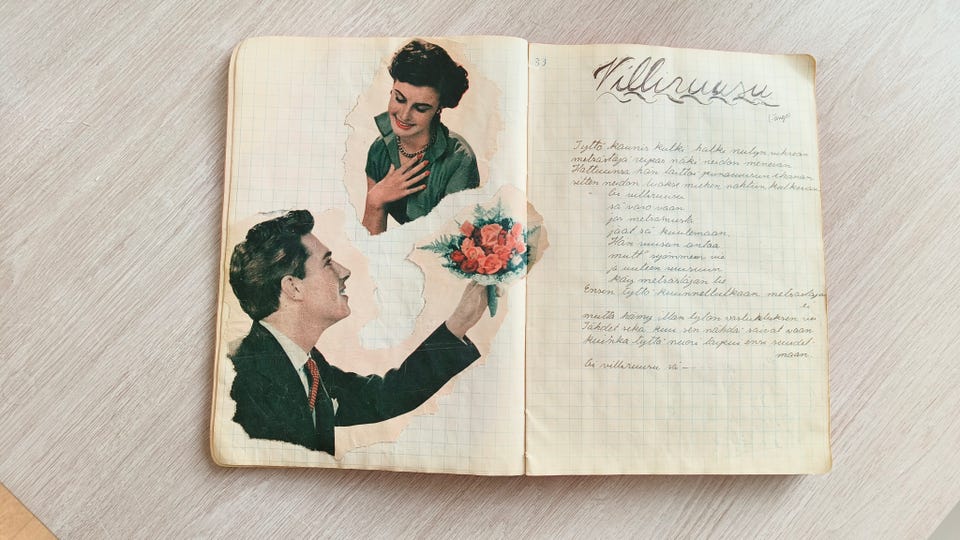 33
Villiruusu
(Tango)
Tyttö kaunis kulki halki niityn vihreän
metsästäjä reipas näki neidon menevän
Hattuunsa hän laittoi punaruusun ihanan
sitten neidon luokse miehen nähtiin kulkevan
Oi villiruusu
sä varo vaan
jos metsämiestä
jäät sä kuulemaan.
Hän ruusun antaa
mutt' syömmen vie
ja uuteen ruusuun
käy metsästäjän tie
Ensin tyttö kuunnellutkaan metsästäjää
ei
mutta hämy illan tytön vastustuksen vei
Tähdet sekä kuu sen nähdä saivat vaan
kuinka tyttö nuori taipui ensi suudel-
maan.
Oi villiruusu sä —